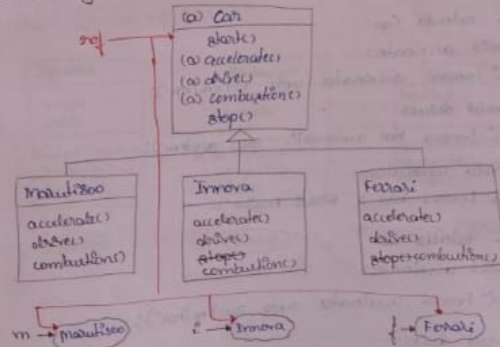 (a) Car
ref
start()
(a) accelerate()
(a) drive()
(a) combustion()
stop()
Maruti800
accelerate()
drive()
combustion()
Innova
accelerate()
drive()
stop()
combustion()
Ferrari
accelerate()
drive()
stop() combustion()
m → Maruti800
i → Innova
f → Ferrari